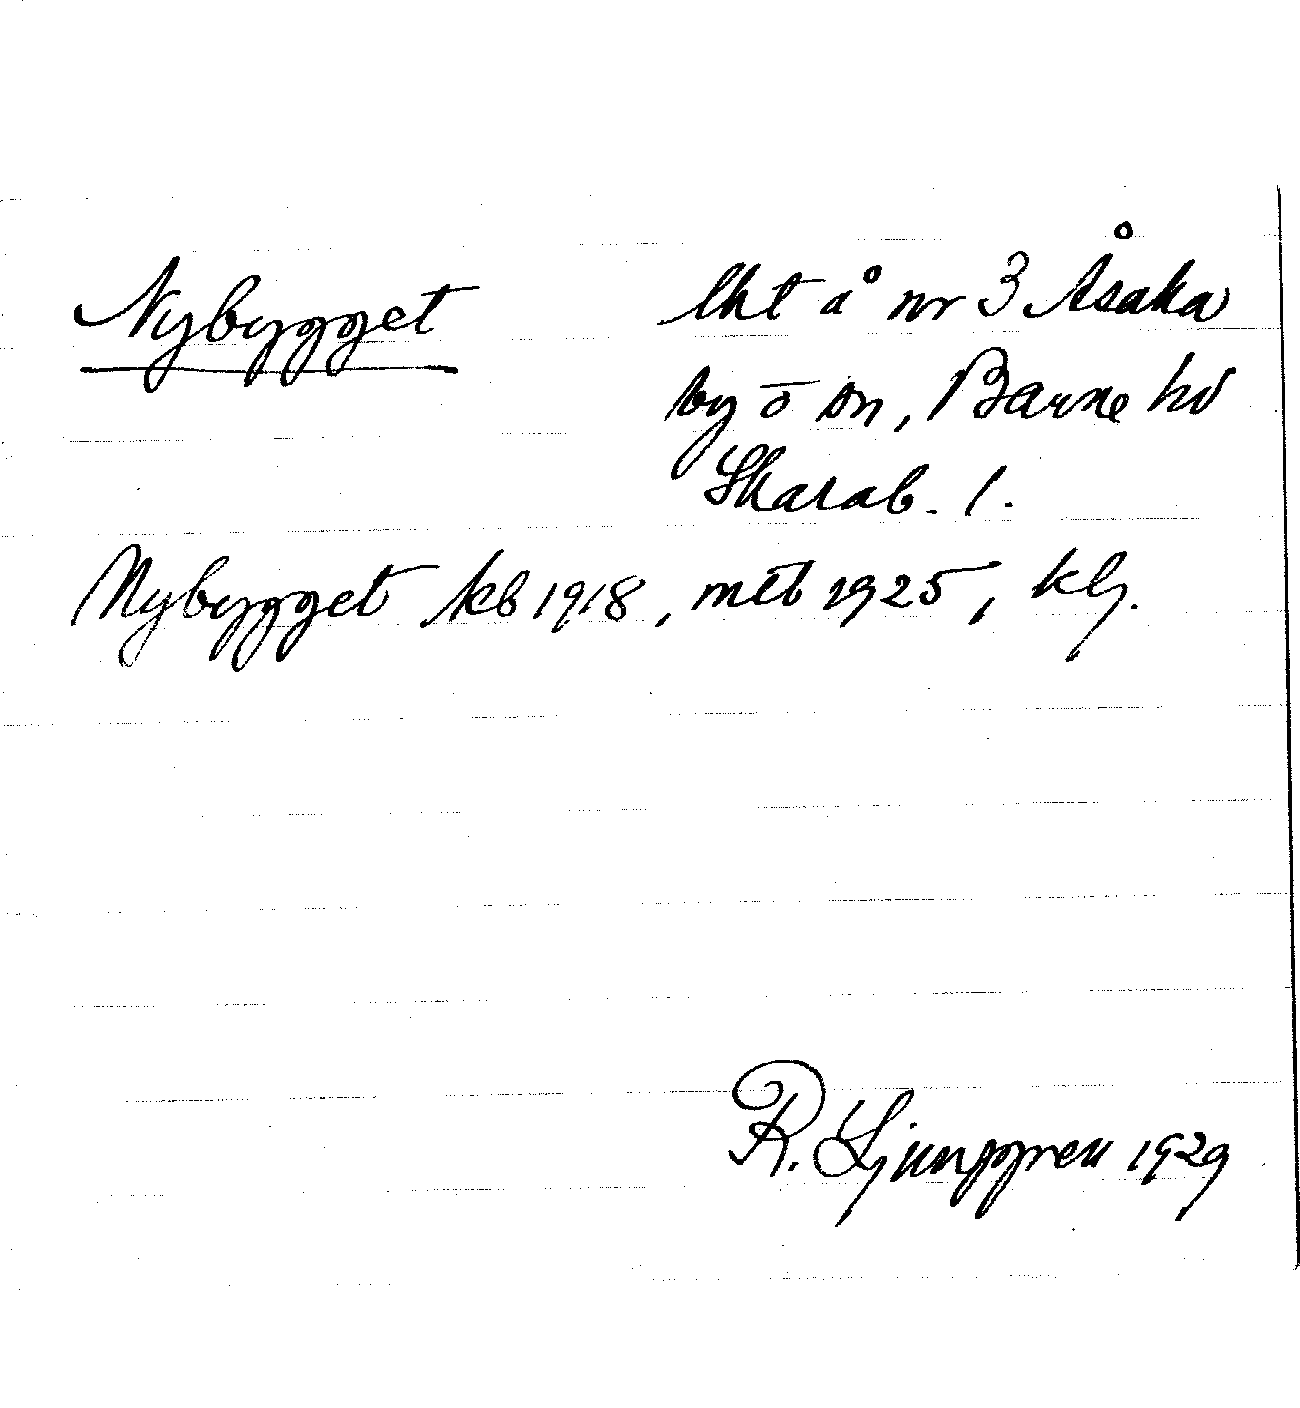 Nybygget lht å nr 3 Åsaka
by o sn, Barne hd
Skarab. l.
Nybygget kb 1918, mtb 1925, klj.
R. Ljunggren 1929